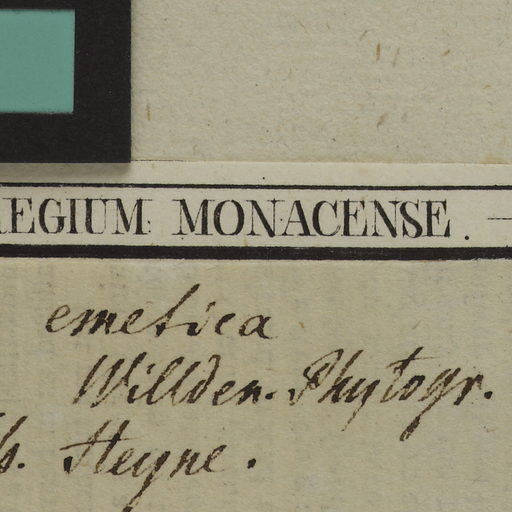 REGIUM MONACENSE.
emetica
Willden. Phytogr.
b. Heyne.